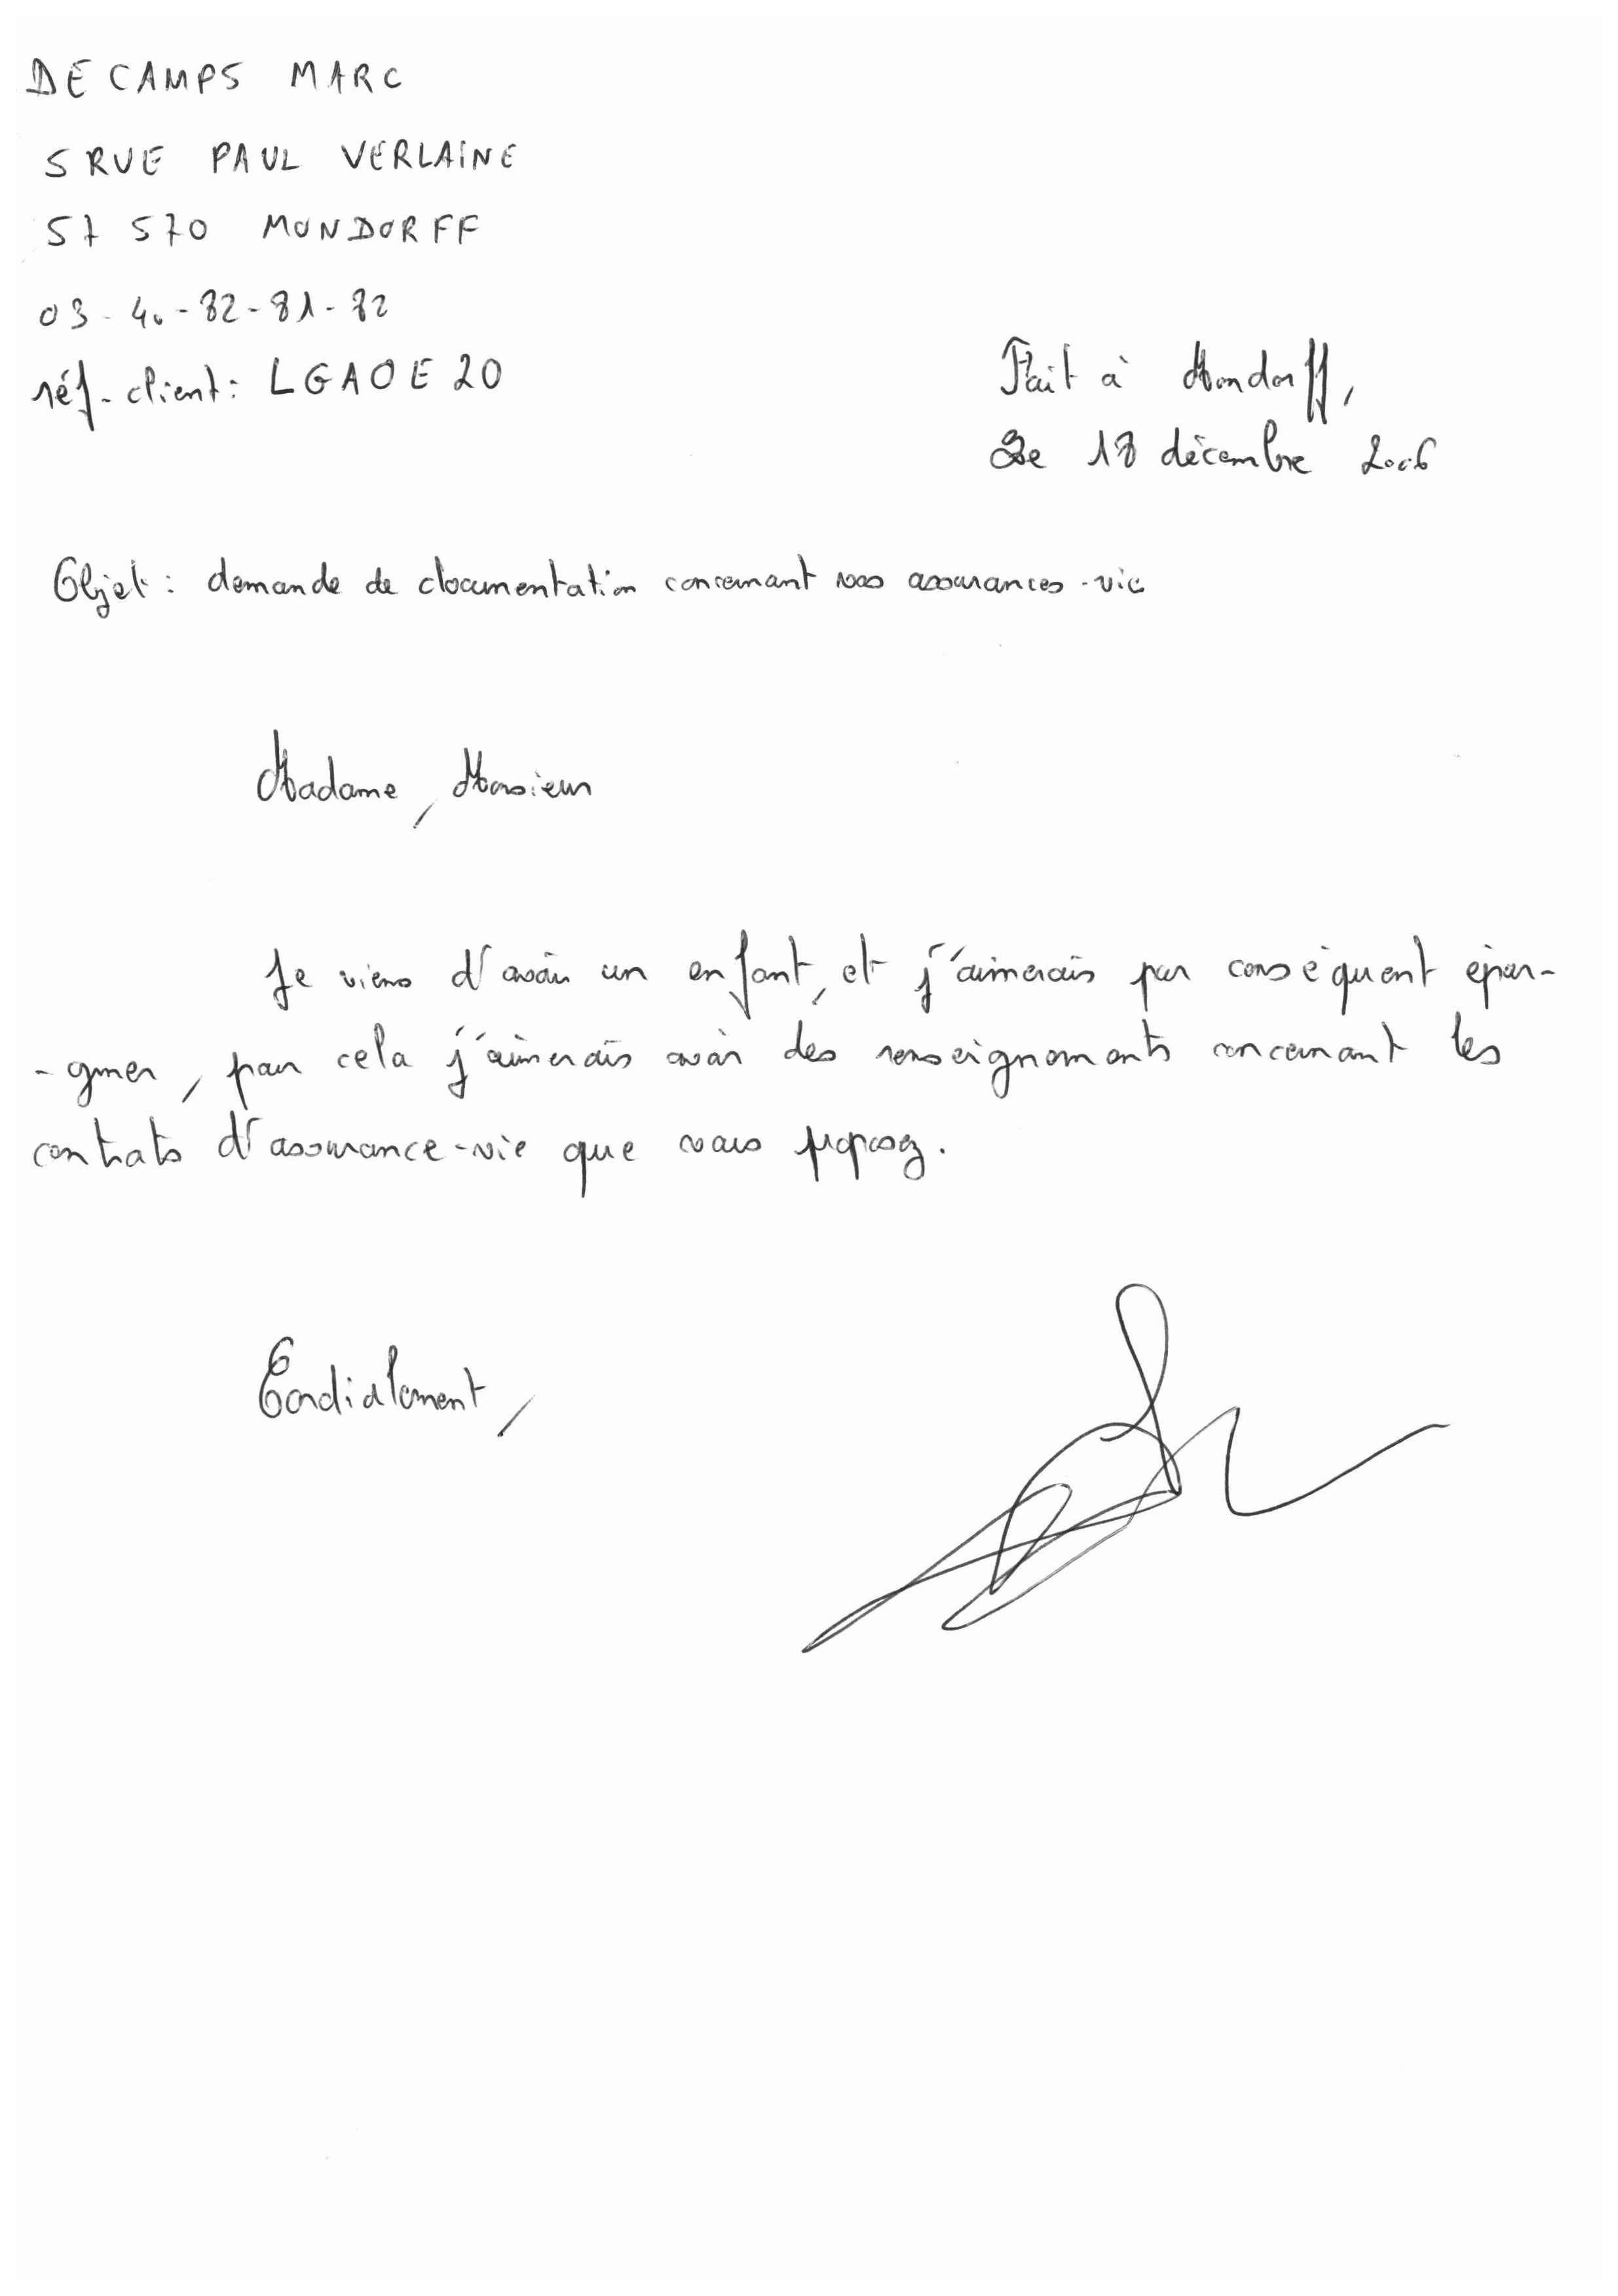 DECAMPS MARC
5 RUE PAUL VERLAINE
57 570 MONDORFF
03-40-82-81-82
réf-client: LGAOE20
Fait à Mondorff,
Le 18 décembre 2006
Objet: demande de documentation concernant vos assurances-vie
Madame, Monsieur
Je viens d'avoir un enfant, et j'aimerais par conséquent épar-
-gner, pour cela j'aimerais avoir des renseignements concernant les
contrats d'assurance-vie que vous proposez.
Cordialement,